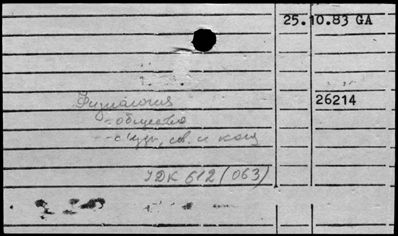 25.10.83 GA
26214
Физиология
- общества
- съезд, св. и конф
УДК 612 (063)